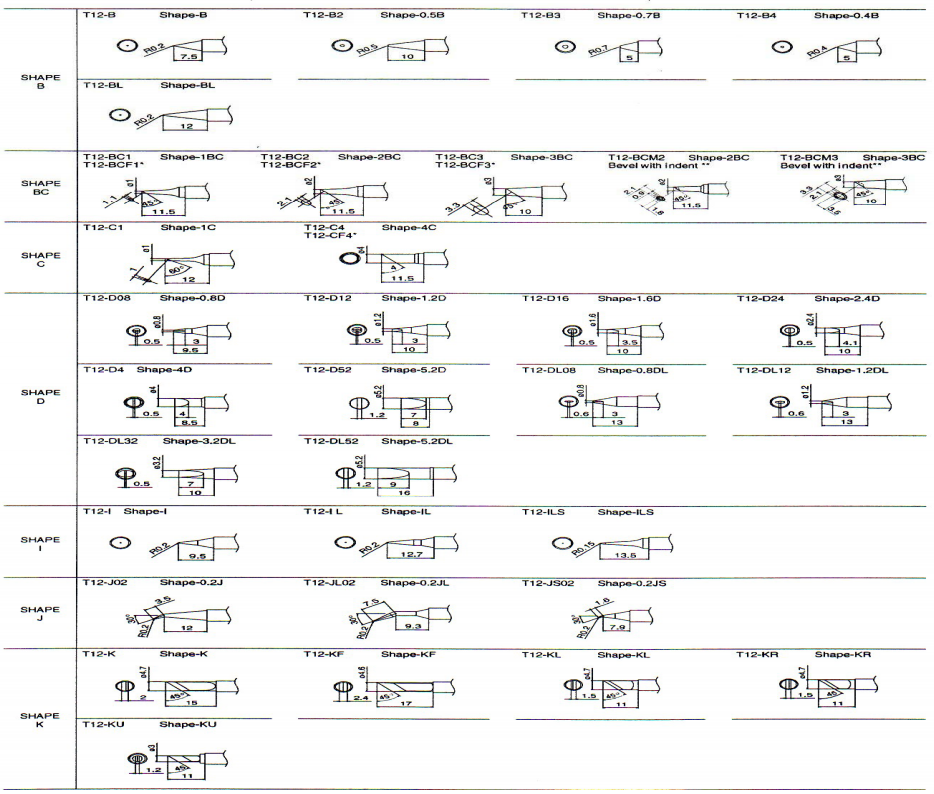 SHAPE
B
T12-B Shape-B
R0.2
7.5
T12-B2 Shape-0.5B
R0.5
10
T12-B3 Shape-0.7B
R0.7
5
T12-B4 Shape-0.4B
R0.4
5
T12-BL Shape-BL
R0.2
12
SHAPE
BC
T12-BC1 Shape-1BC
T12-BCF1*
ø1
1.1
45°
11.5
T12-BC2 Shape-2BC
T12-BCF2*
ø2
2.1
11.5
T12-BC3 Shape-3BC
T12-BCF3*
ø3
3.3
45°
10
T12-BCM2 Shape-2BC
Bevel with indent **
ø2
2.1
1.8
45°
11.5
T12-BCM3 Shape-3BC
Bevel with indent**
ø3
3.3
45°
10
SHAPE
C
T12-C1 Shape-1C
ø1
1
60°
12
T12-C4 Shape-4C
T12-CF4*
ø4
4
11.5
SHAPE
D
T12-D08 Shape-0.8D
ø0.8
0.5 3
9.5
T12-D12 Shape-1.2D
ø1.2
0.5 3
10
T12-D16 Shape-1.6D
ø1.6
0.5 3.5
10
T12-D24 Shape-2.4D
ø2.4
0.5 4.1
10
T12-D4 Shape-4D
ø4
0.5 4
8.5
T12-D52 Shape-5.2D
ø5.2
1.2 7
8
T12-DL08 Shape-0.8DL
ø0.8
0.6 3
13
T12-DL12 Shape-1.2DL
ø1.2
0.6 3
13
T12-DL32 Shape-3.2DL
ø3.2
0.5 7
10
T12-DL52 Shape-5.2DL
ø5.2
1.2 9
16
SHAPE
I
T12-I Shape-I
R0.2
9.5
T12-I L Shape-IL
R0.2
12.7
T12-ILS Shape-ILS
R0.15
13.5
SHAPE
J
T12-J02 Shape-0.2J
3.5
30°
R0.2
12
T12-JL02 Shape-0.2JL
7.5
30°
R0.2
9.3
T12-JS02 Shape-0.2JS
1.6
30°
R0.2
7.9
SHAPE
K
T12-K Shape-K
ø4.7
2 45°
15
T12-KF Shape-KF
ø4.6
2.4 45°
17
T12-KL Shape-KL
ø4.7
1.5 45°
11
T12-KR Shape-KR
ø4.7
1.5 45
11
T12-KU Shape-KU
ø3
1.2 45
11